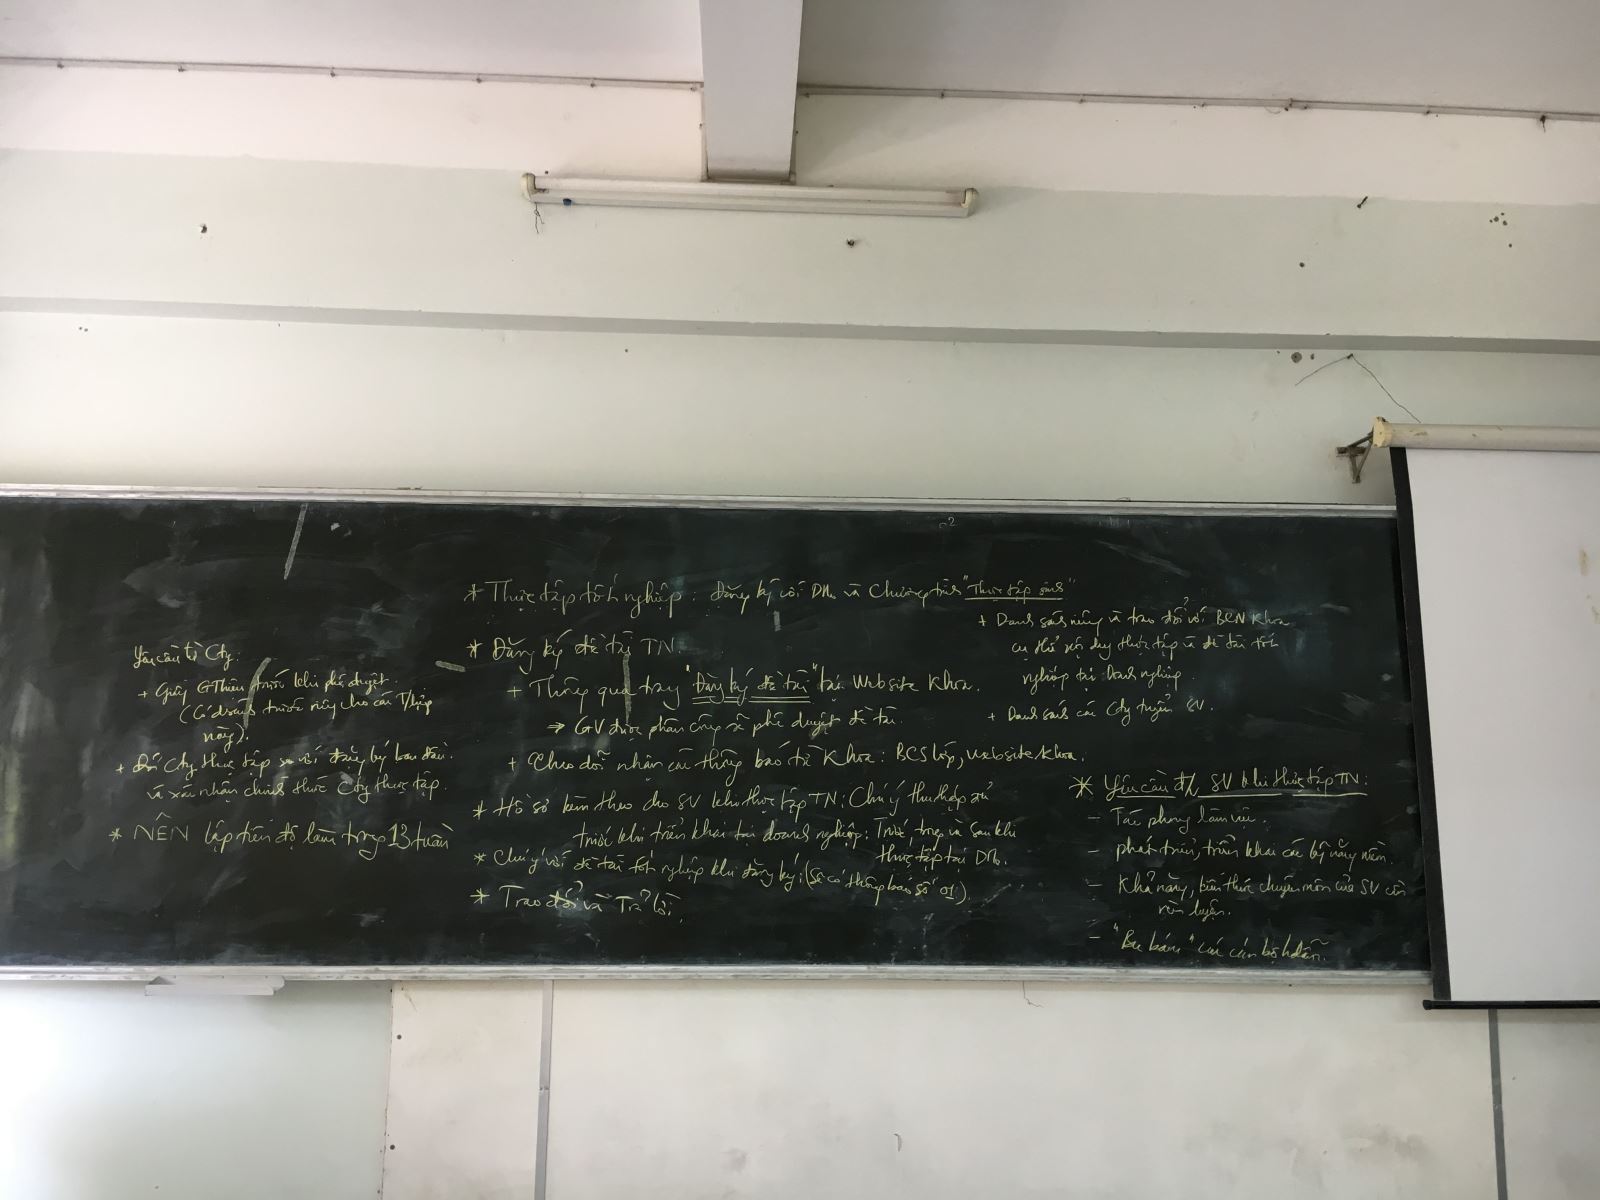 Yêu cầu từ Cty:
+ Giấy GThiệu trước khi phê duyệt.
(Có danh trước riêng cho các T/hợp
này).
+ Đ Cty thực tập so với đăng ký ban đầu.
và xác nhận chính thức Cty thực tập.
* NÊN lập tiến độ làm trong 13 tuần
* Thực tập tốt nghiệp: Đăng ký với DN. và Chương trình "Thực tập sinh"
* Đăng ký đề tài TN.
+ Thông qua trang "Đăng ký đề tài" tại Website Khoa.
⇒ GV được phân công sẽ phê duyệt đề tài.
+ Theo dõi nhận các thông báo từ Khoa: BCS lớp, website khoa.
* Hồ sơ kèm theo cho SV khi thực tập TN: Chú ý thu thập
trước khi triển khai tại doanh nghiệp: Trước, trong và sau khi
thực tập tại DN.
* Chú ý với đề tài tốt nghiệp khi đăng ký: (Sẽ có thông báo số 01).
* Trao đổi và Trả lời.
+ Danh sách riêng và trao đổi với BCN Khoa
cụ thể nội dung thực tập và đề tài tốt
nghiệp tại Doanh nghiệp.
+ Danh sách các Cty tuyển SV.
* Yêu cầu đ/v SV khi thực tập TN:
- Tác phong làm việc.
- phát triển, triển khai các kỹ năng mềm.
- Khả năng, kiến thức chuyên môn của SV cần
rèn luyện.
- "Bu bám" các cán bộ hdẫn.